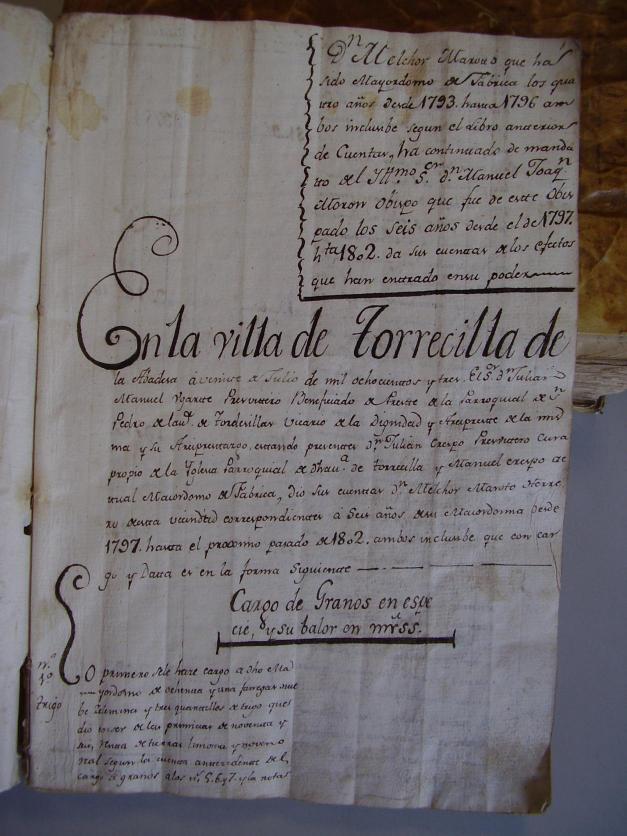 Dn Melchor Maroto que ha
sido Mayordomo de Fabrica los qua
tro años desde 1793. hasta 1796 am
bos inclusibe segun el libro anterior
de Cuentas, ha continuado de manda
to del Yttmo Sr dn Manuel Joaqn
Moron Obispo que fue de este Obis
pado los seis años desde el de 1797.
hta 1802. da sus cuentas de los efectos
que han entrado en su poder
En la villa de Torrecilla de
la Abadesa à veinte de Julio de mil ochocientos y tres. El Sr dn Julian
Manuel Ygarte Presvitero Beneficiado de Preste de la Parroquial de Sn
Pedro de la de Tordesillas Vicario de la Dignidad y Arciprente de la mis
ma y su Arciprentazgo, estando presentes dn Julian Crespo Presvitero Cura
propio de la Yglesia Parroquial de dha va de Torrecilla y Manuel Crespo ac
tual Maiordomo de Fabrica, dio sus cuentas dn Melchor Maroto Herre
ro de esta vecindad correspondientes à seis años de su Maiordomia desde
1797. hasta el proximo pasado de 1802. ambos inclusibe que con car
go y Datta es en la forma siguiente
Cargo de Granos en espe
cie, y su balor en mrss.
nº
1º
trigo
Lo primero se le hace cargo a dho Ma
yordomo de ochenta y una fanegas nue
be zelemines y tres quartillos de trigo que
dio de las primicias de noventa y
seis, Renta de tierras limosna y noveno
Real segun la cuenta antecedente del
cargo de granos a los nros 5. 6 y 7. y la notas